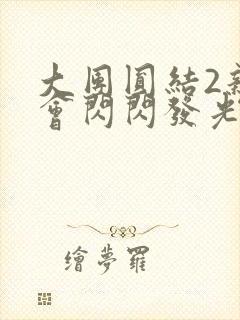 大團圓結2
會閃閃發光
繪夢羅